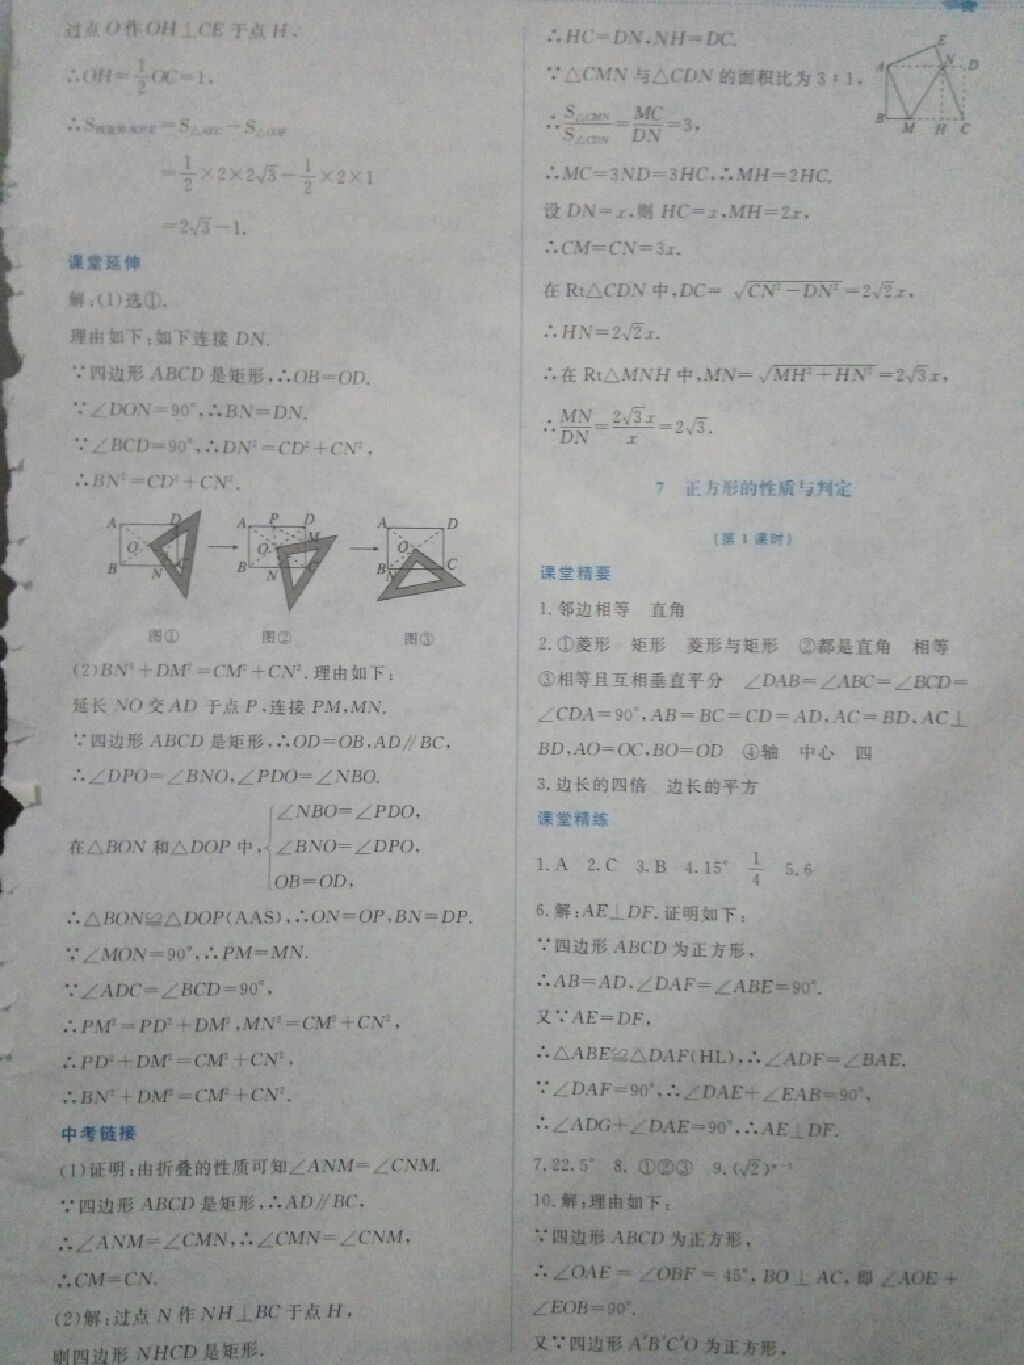 过点O作OH⊥CE于点H,
∴OH=1/2OC=1,
∴S四边形AOFE=S△AEC-S△COF
=1/2×2×2√3-1/2×2×1
=2√3-1.
课堂延伸
解:(1)选①.
理由如下:如下连接DN.
∵四边形ABCD是矩形,∴OB=OD.
∵∠DON=90°,∴BN=DN.
∵∠BCD=90°,∴DN²=CD²+CN²,
∴BN²=CD²+CN².
A D O B N C
A P D M O B N C
A D O B N C
图① 图② 图③
(2)BN²+DM²=CM²+CN².理由如下:
延长NO交AD于点P,连接PM,MN.
∵四边形ABCD是矩形,∴OD=OB,AD∥BC,
∴∠DPO=∠BNO,∠PDO=∠NBO.
∠NBO=∠PDO,
在△BON和△DOP中,∠BNO=∠DPO,
OB=OD,
∴△BON≌△DOP(AAS),∴ON=OP,BN=DP.
∵∠MON=90°,∴PM=MN.
∵∠ADC=∠BCD=90°,
∴PM²=PD²+DM²,MN²=CM²+CN²,
∴PD²+DM²=CM²+CN²,
∴BN²+DM²=CM²+CN².
中考链接
(1)证明:由折叠的性质可知∠ANM=∠CNM.
∵四边形ABCD是矩形,∴AD∥BC,
∴∠ANM=∠CMN,∴∠CMN=∠CNM,
∴CM=CN.
(2)解:过点N作NH⊥BC于点H,
则四边形NHCD是矩形.
∴HC=DN,NH=DC.
∵△CMN与△CDN的面积比为3∶1,
∴S△CMN/S△CDN=MC/DN=3,
∴MC=3ND=3HC,∴MH=2HC.
设DN=x,则HC=x,MH=2x,
∴CM=CN=3x.
在Rt△CDN中,DC=√(CN²-DN²)=2√2x,
∴HN=2√2x.
∴在Rt△MNH中,MN=√(MH²+HN²)=2√3x,
∴MN/DN=2√3x/x=2√3.
E
A N D
B M H C
7 正方形的性质与判定
(第1课时)
课堂精要
1.邻边相等 直角
2.①菱形 矩形 菱形与矩形 ②都是直角 相等
③相等且互相垂直平分 ∠DAB=∠ABC=∠BCD=
∠CDA=90°,AB=BC=CD=AD,AC=BD,AC⊥
BD,AO=OC,BO=OD ④轴 中心 四
3.边长的四倍 边长的平方
课堂精练
1.A 2.C 3.B 4.15° 1/4 5.6
6.解:AE⊥DF.证明如下:
∵四边形ABCD为正方形,
∴AB=AD,∠DAF=∠ABE=90°.
又∵AE=DF,
∴△ABE≌△DAF(HL),∴∠ADF=∠BAE.
∵∠DAF=90°,∴∠DAE+∠EAB=90°,
∴∠ADG+∠DAE=90°,∴AE⊥DF.
7.22.5° 8.①②③ 9.(√2)ⁿ⁻¹
10.解:理由如下:
∵四边形ABCD为正方形,
∴∠OAE=∠OBF=45°,BO⊥AC,即∠AOE+
∠EOB=90°.
又∵四边形A'B'C'O为正方形,